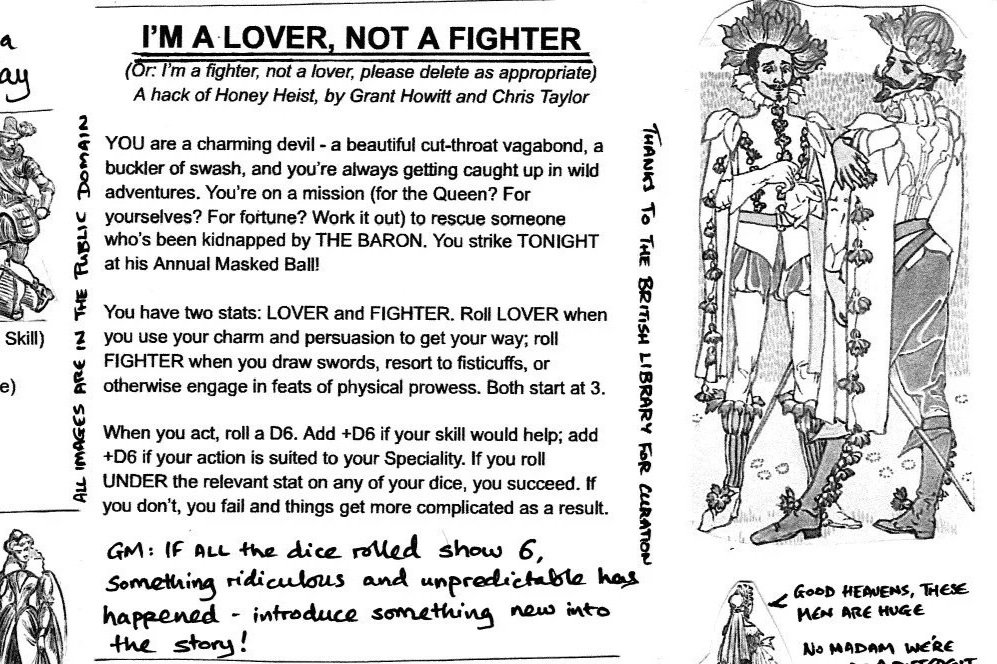 a
ay
Skill)
e)
ALL IMAGES ARE IN THE PUBLIC DOMAIN
I'M A LOVER, NOT A FIGHTER
(Or: I'm a fighter, not a lover, please delete as appropriate)
A hack of Honey Heist, by Grant Howitt and Chris Taylor
YOU are a charming devil - a beautiful cut-throat vagabond, a
buckler of swash, and you're always getting caught up in wild
adventures. You're on a mission (for the Queen? For
yourselves? For fortune? Work it out) to rescue someone
who's been kidnapped by THE BARON. You strike TONIGHT
at his Annual Masked Ball!
You have two stats: LOVER and FIGHTER. Roll LOVER when
you use your charm and persuasion to get your way; roll
FIGHTER when you draw swords, resort to fisticuffs, or
otherwise engage in feats of physical prowess. Both start at 3.
When you act, roll a D6. Add +D6 if your skill would help; add
+D6 if your action is suited to your Speciality. If you roll
UNDER the relevant stat on any of your dice, you succeed. If
you don't, you fail and things get more complicated as a result.
GM: IF ALL the dice rolled show 6,
something ridiculous and unpredictable has
happened - introduce something new into
the story!
THANKS TO THE BRITISH LIBRARY FOR CURATION
GOOD HEAVENS, THESE
MEN ARE HUGE
NO MADAM WE'RE